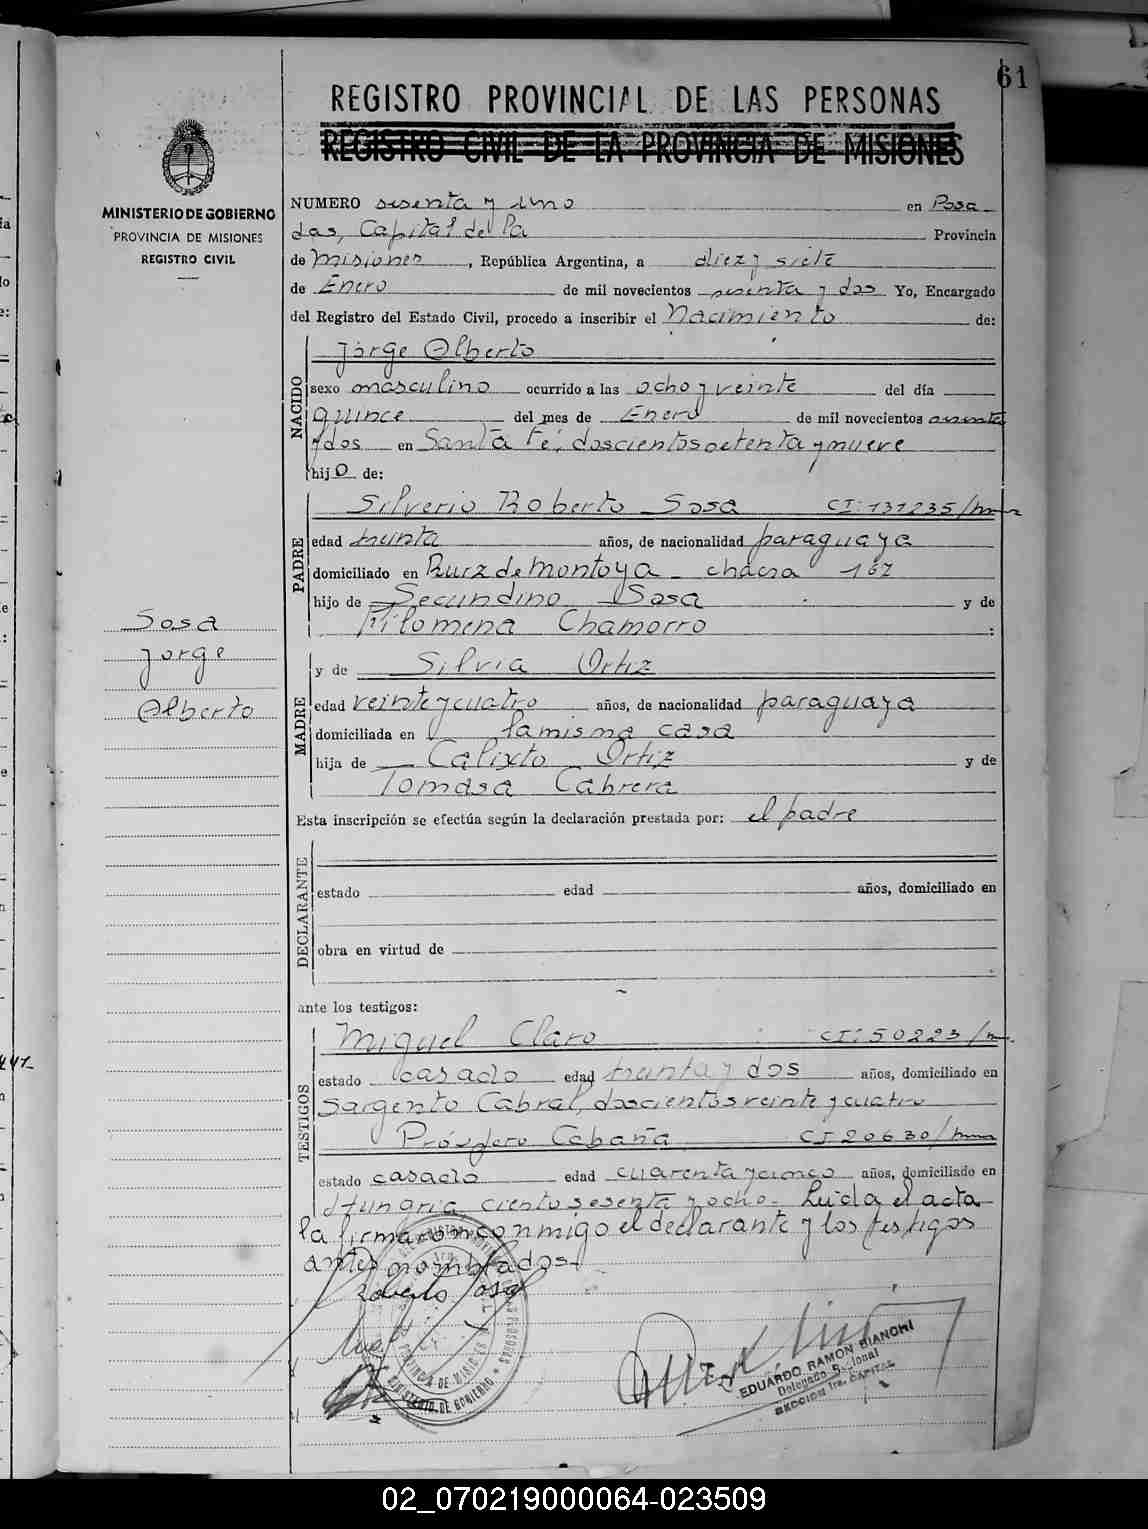 61
REGISTRO PROVINCIAL DE LAS PERSONAS
REGISTRO CIVIL DE LA PROVINCIA DE MISIONES
MINISTERIO DE GOBIERNO
PROVINCIA DE MISIONES
REGISTRO CIVIL
NUMERO sesenta y uno en Posa
das, Capital de la Provincia
de Misiones, República Argentina, a diez y siete
de Enero de mil novecientos sesenta y dos Yo, Encargado
del Registro del Estado Civil, procedo a inscribir el Nacimiento de:
NACIDO
Jorge Alberto
sexo masculino ocurrido a las ocho y veinte del día
quince del mes de Enero de mil novecientos sesenta
y dos en Santa Fé, doscientos setenta y nueve
hijo de:
PADRE
Silverio Roberto Sosa CI: 131235/
edad treinta años, de nacionalidad paraguaya
domiciliado en Ruiz de Montoya - chacra 167
hijo de Secundino Sosa y de
Filomena Chamorro :
Sosa
Jorge
Alberto
MADRE
y de Silvia Ortiz
edad veinte y cuatro años, de nacionalidad paraguaya
domiciliada en la misma casa
hija de Calixto Ortiz y de
Tomasa Cabrera
Esta inscripción se efectúa según la declaración prestada por: el padre
DECLARANTE
estado edad años, domiciliado en
obra en virtud de
ante los testigos:
TESTIGOS
Miguel Claro CI: 50223/
estado casado edad treinta y dos años, domiciliado en
Sargento Cabral, doscientos veinte y cuatro
Próspero Cabaña CI 20630/
estado casado edad cuarenta y cinco años, domiciliado en
Hungria, ciento sesenta y ocho.- Leida el acta
la firmaron conmigo el declarante y los testigos
antes nombrados.-
Roberto Sosa
EDUARDO RAMON BIANCHI
Delegado Seccional
SECCION 1ra. CAPITAL
PROVINCIA DE MISIONES
MINISTERIO DE GOBIERNO
02_070219000064-023509